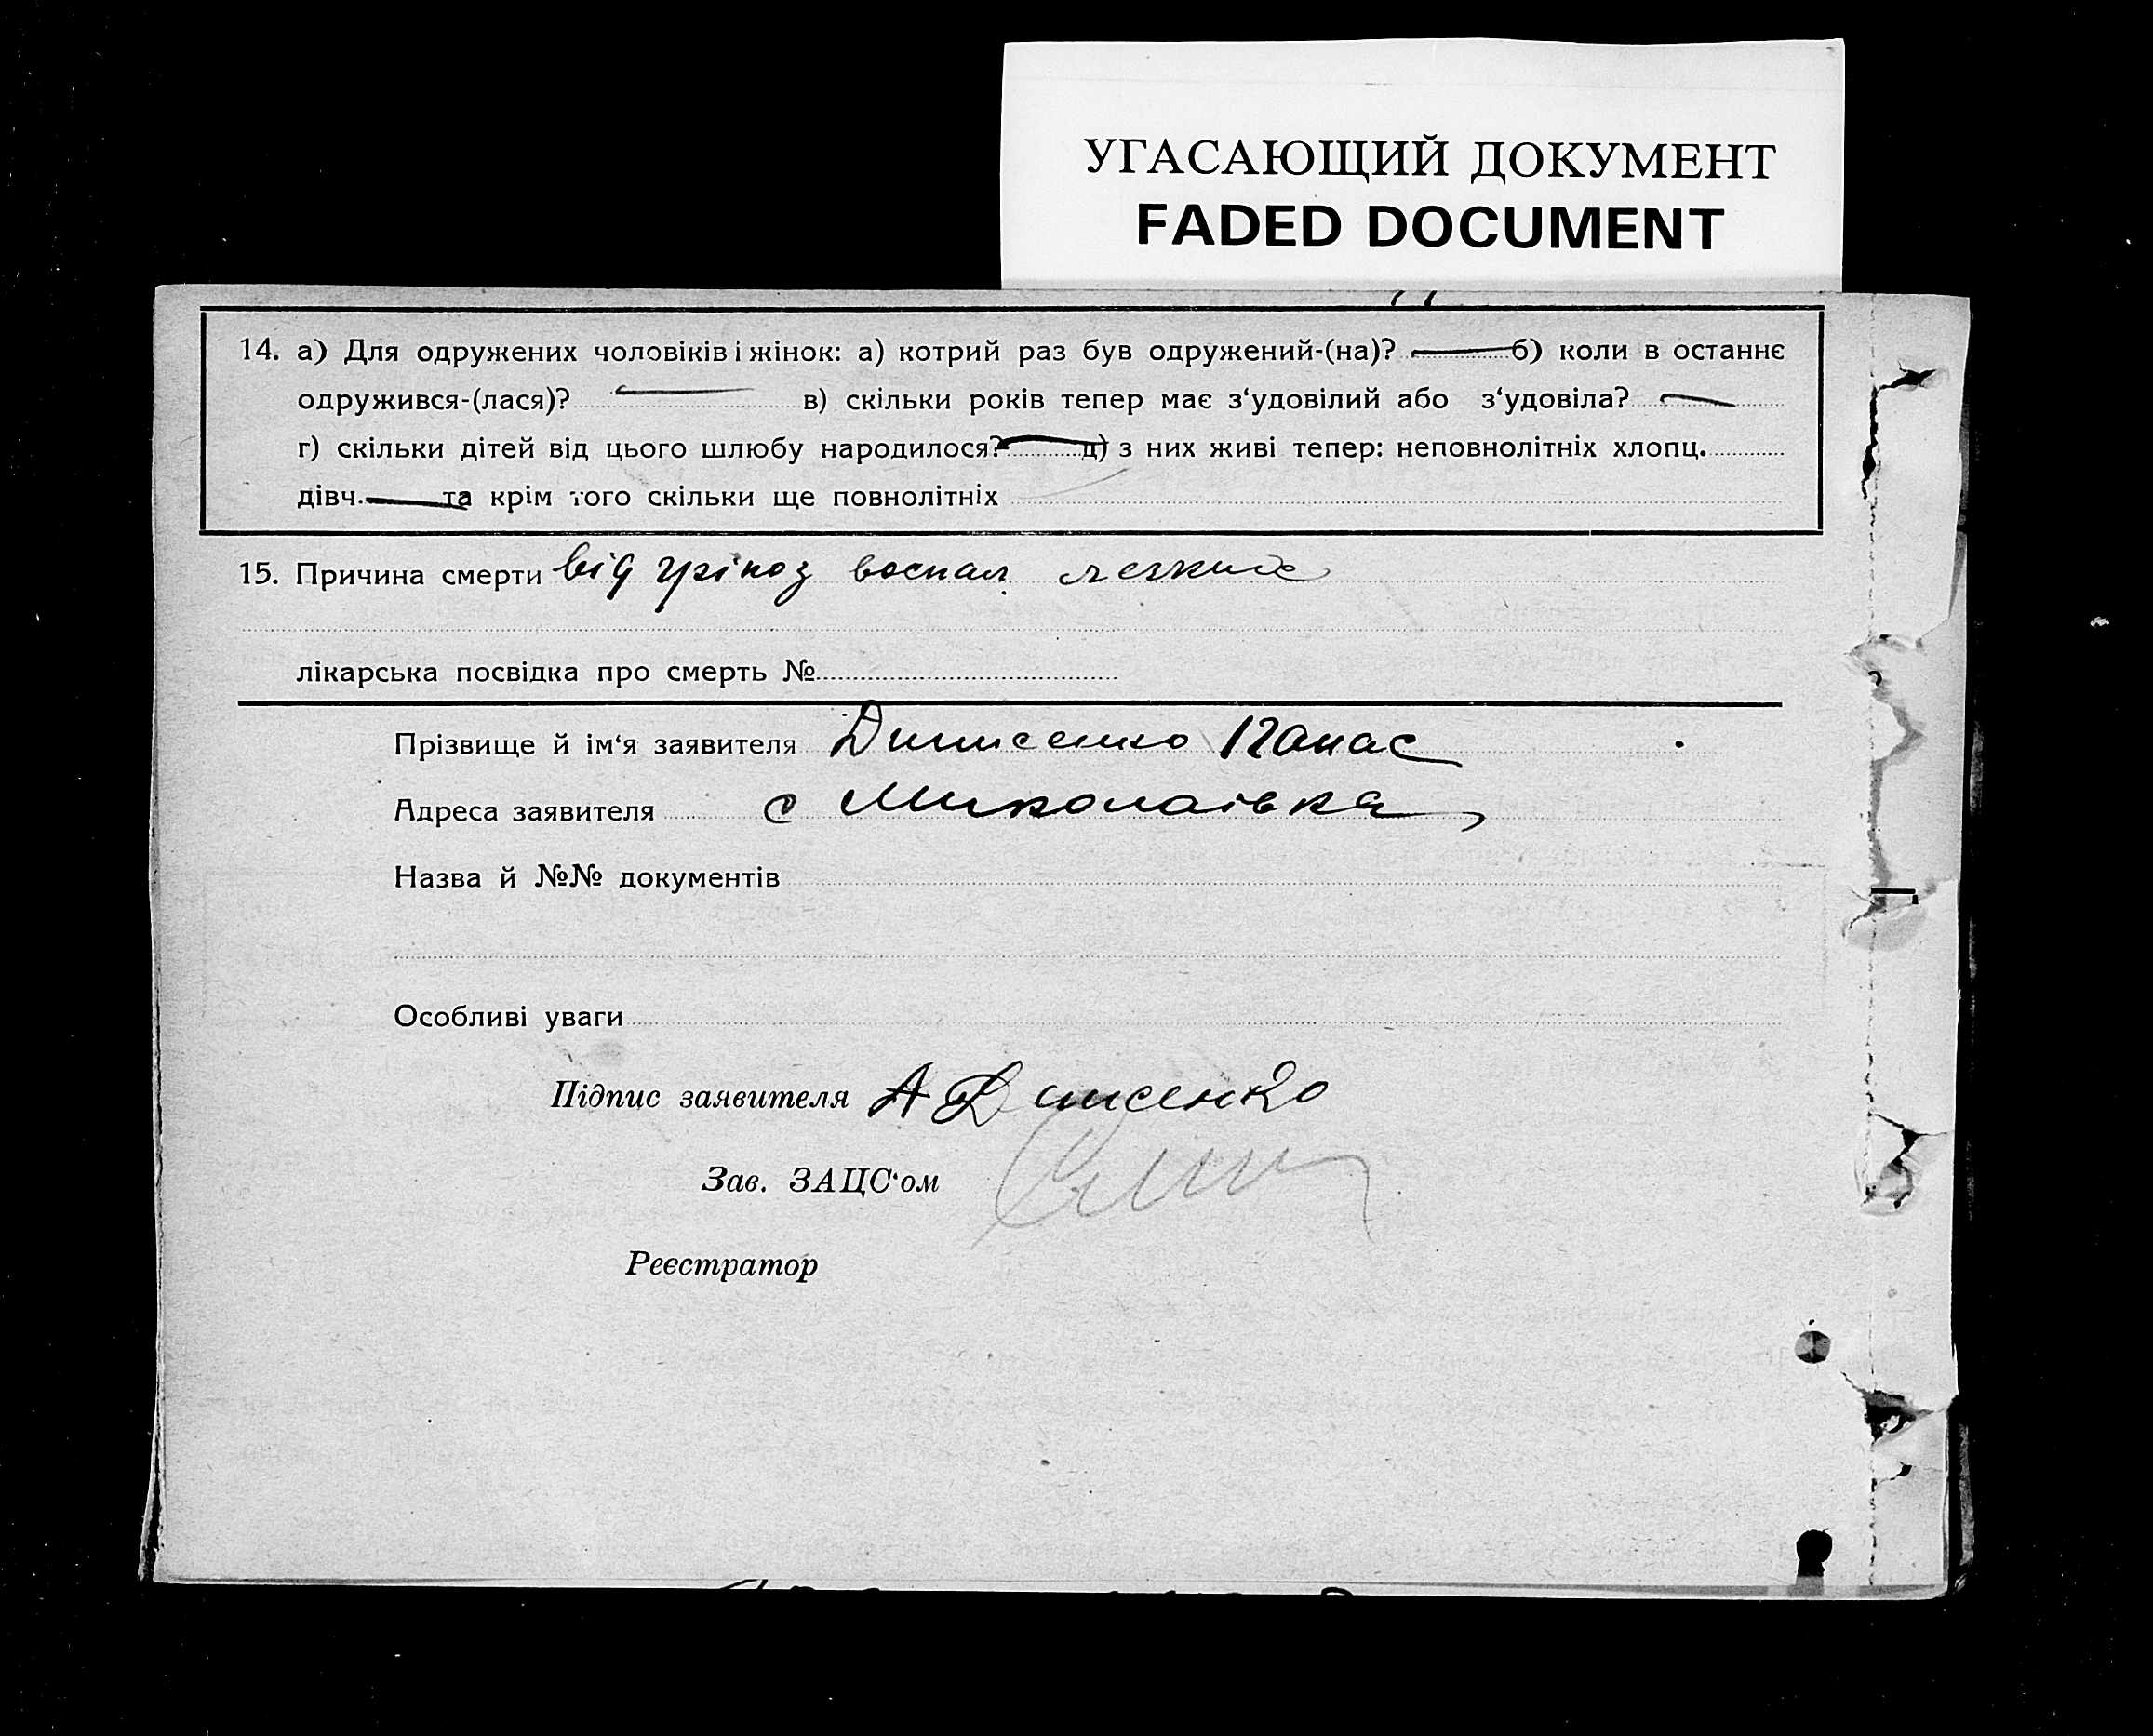 УГАСАЮЩИЙ ДОКУМЕНТ
FADED DOCUMENT
14. а) Для одружених чоловіків і жінок: а) котрий раз був одружений-(на)? б) коли в останнє
одружився-(лася)? в) скільки років тепер має з‘удовілий або з‘удовіла?
г) скільки дітей від цього шлюбу народилося? д) з них живі тепер: неповнолітніх хлопц.
дівч. та крім того скільки ще повнолітніх
15. Причина смерти від воспал легких
лікарська посвідка про смерть №
Прізвище й ім‘я заявителя Панас
Адреса заявителя с Миколаівка
Назва й №№ документів
Особливі уваги
Підпис заявителя А
Зав. ЗАЦС‘ом
Реєстратор